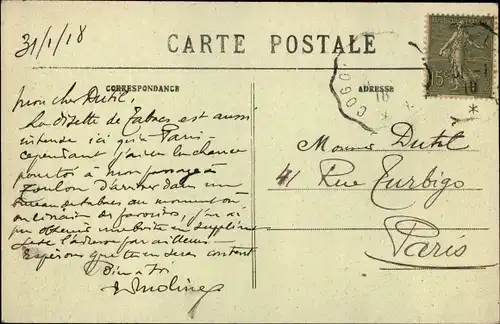 31/1/18
CARTE POSTALE
CORRESPONDANCE
ADRESSE
COGO
15c
10
Mon cher Dutil,
La disette de tabacs est aussi
intense ici qu'à Paris -
cependant j'ai eu la chance
pour toi à mon passage à
Toulon d'arriver dans un
bureau de tabac au moment où
on
j'en ai
pu obtenir une boîte en supplément
par ailleurs -
Espérons que tu en seras content
Bien à toi
Monsieur Dutil
41 Rue Turbigo
Paris